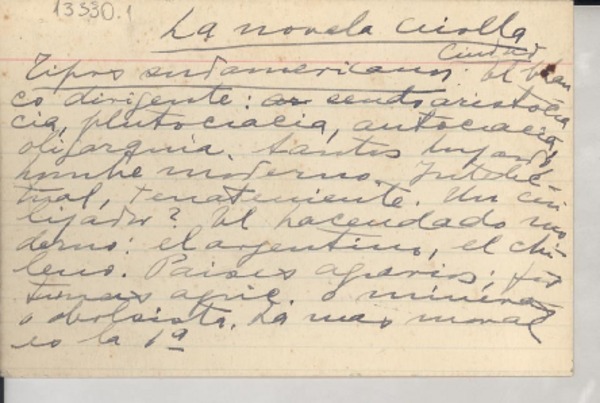 13530.1
La novela criolla
Ciudad
Tipos sudamericanos: El blan
co dirigente: seudoaristocra
cia, plutocracia, autocracia,
oligarquía. Santos Luzardo,
hombre moderno. Intelec-
tual, terrateniente. Un civi
lizador? El hacendado mo
derno: el argentino, el chi-
leno. Países agrarios; for
tunas agric. o mineras
o bolsista. La mas moral
es la 1ª